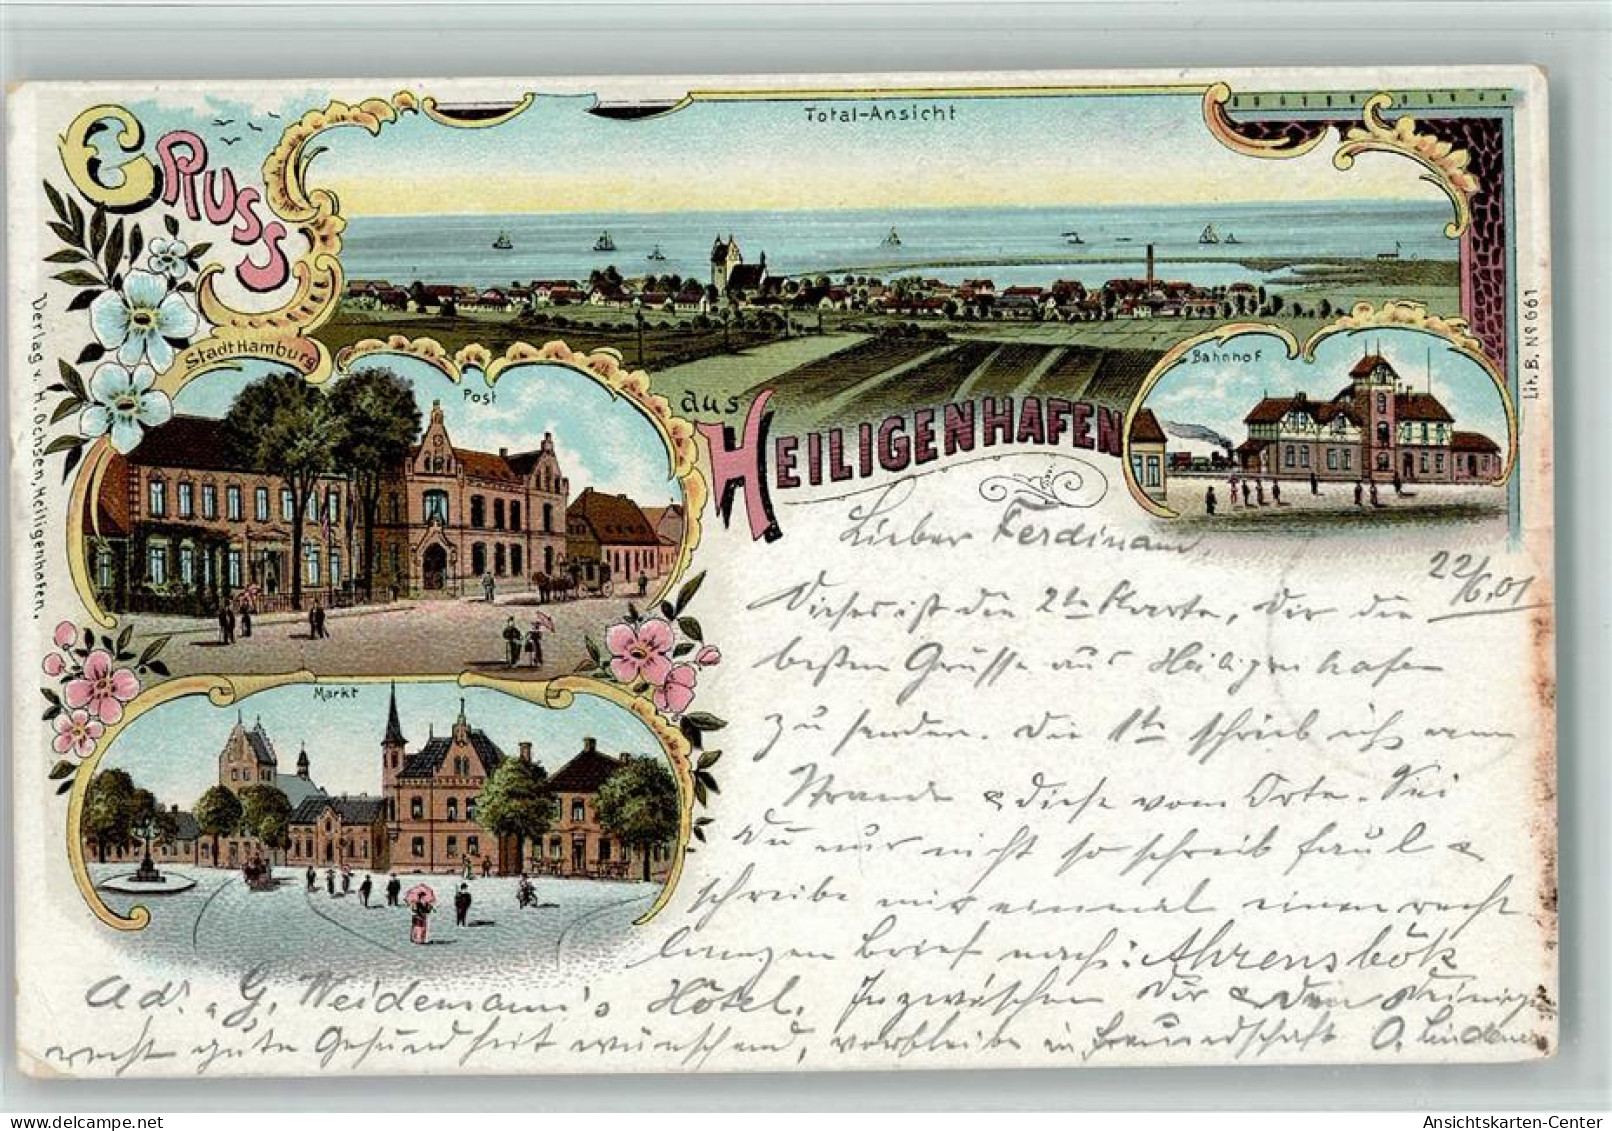 Total-Ansicht
GRUSS
Stadt Hamburg
Post
aus
HEILIGENHAFEN
Bahnhof
Markt
Verlag v. H. Ochsen, Heiligenhafen.
Lit. B. No 661
Lieber Ferdinand,
22/6.01
Dieses ist die 2te Karte, Dir die
besten Grüsse aus Heiligenhafen
zu senden. Die 1te schrieb ich vom
Strande & diese vom Orte. Sei
Du nur nicht so schreib faul &
schreibe mir einmal einen recht
langen Brief nach: Ahrensbök
Ad. G. Weidemann's Hôtel. Inzwischen Dir & den Deinigen
recht gute Gesundheit wünschend, verbleibe in Freundschaft O. Lindener
Ansichtskarten-Center